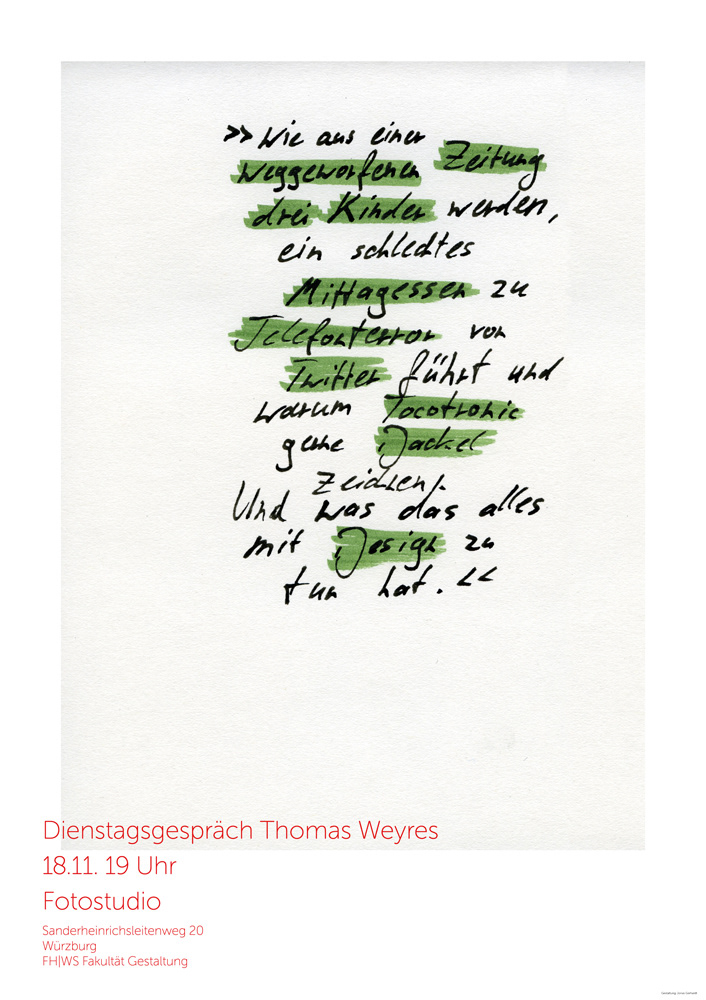 >> Wie aus einer
weggeworfenen Zeitung
drei Kinder werden,
ein schlechtes
Mittagessen zu
Telefonterror von
Twitter führt und
warum Tocotronic
gerne Dackel
zeichnen.
Und was das alles
mit Design zu
tun hat. <<
Dienstagsgespräch Thomas Weyres
18.11. 19 Uhr
Fotostudio
Sanderheinrichsleitenweg 20
Würzburg
FH|WS Fakultät Gestaltung